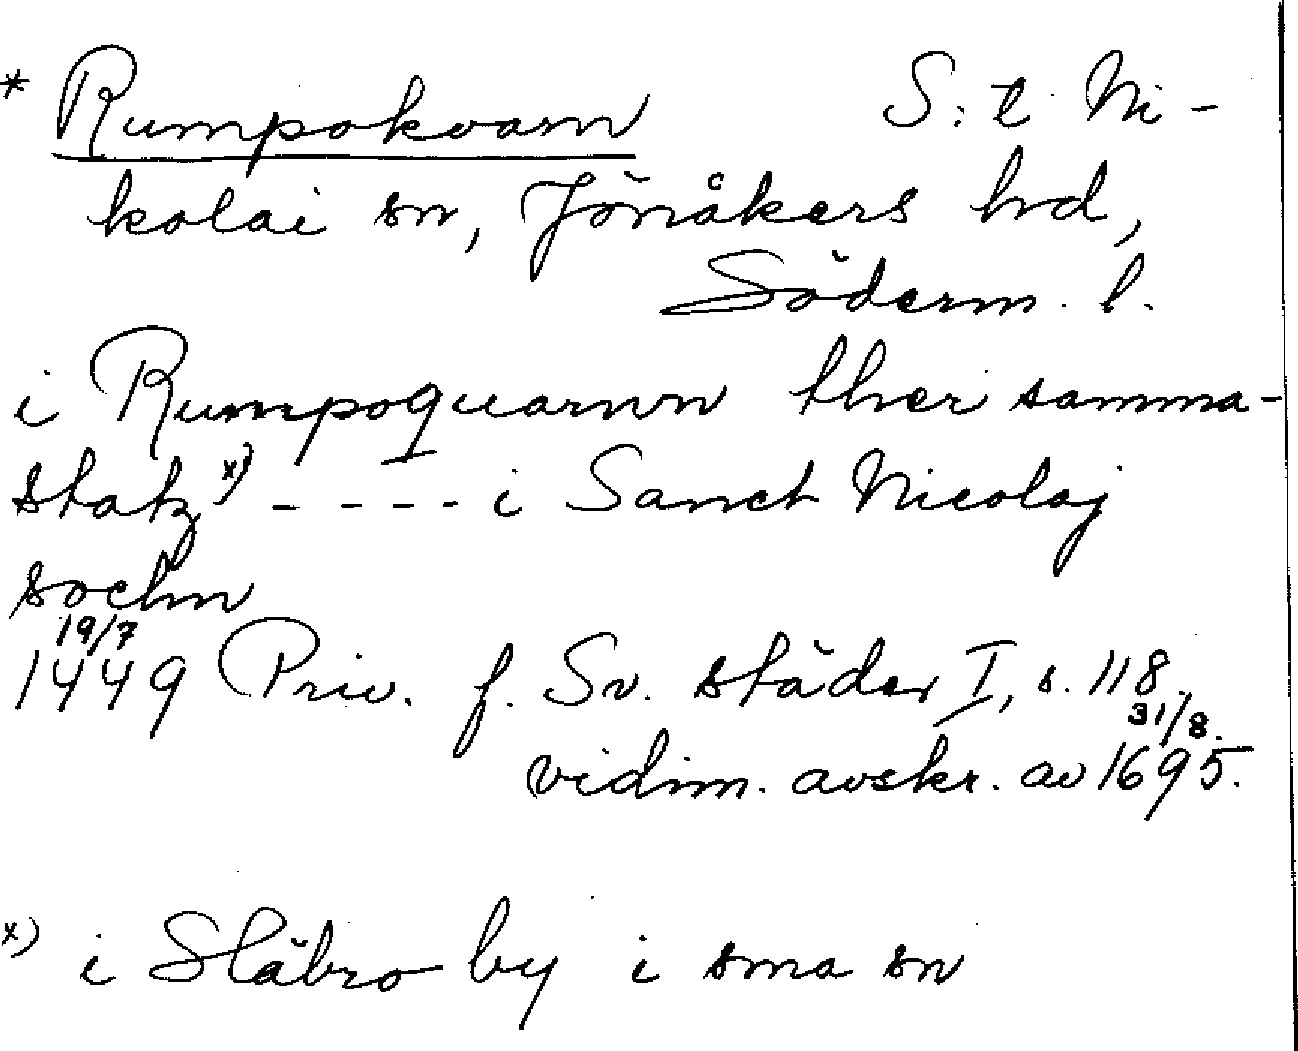 * Rumpokvarn S:t Ni-
kolai sn, Jönåkers hd,
Söderm. l.
i Rumpoquarnn ther samma-
statz x) - - - - i Sanct Nicolaj
sochn
19/7
1449 Priv. f. Sv. städer I, s. 118.
31/8.
vidim. avskr. av 1695.
x) i Släbro by i sma sn